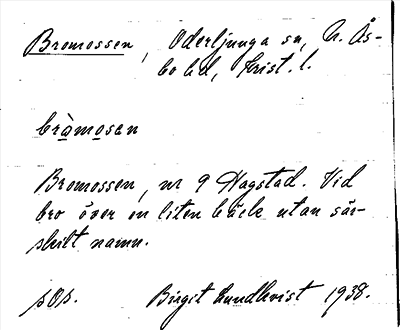 Bromossen, Oderljunga sn, N. Ås-
bo hd, Krist. l.
bròmosan
Bromossen, nr 9 Hagstad. Vid
bro över en liten bäck utan sär-
skilt namn.
sOs.
Birgit Lundkvist 1938.